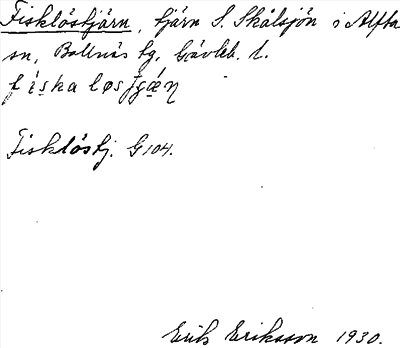 Fisklöstjärn, tjärn S. Skålsjön i Alfta
sn, Bollnäs tg. Gävleb. l.
Fisklöstj. G 104.
Erik Eriksson 1930.